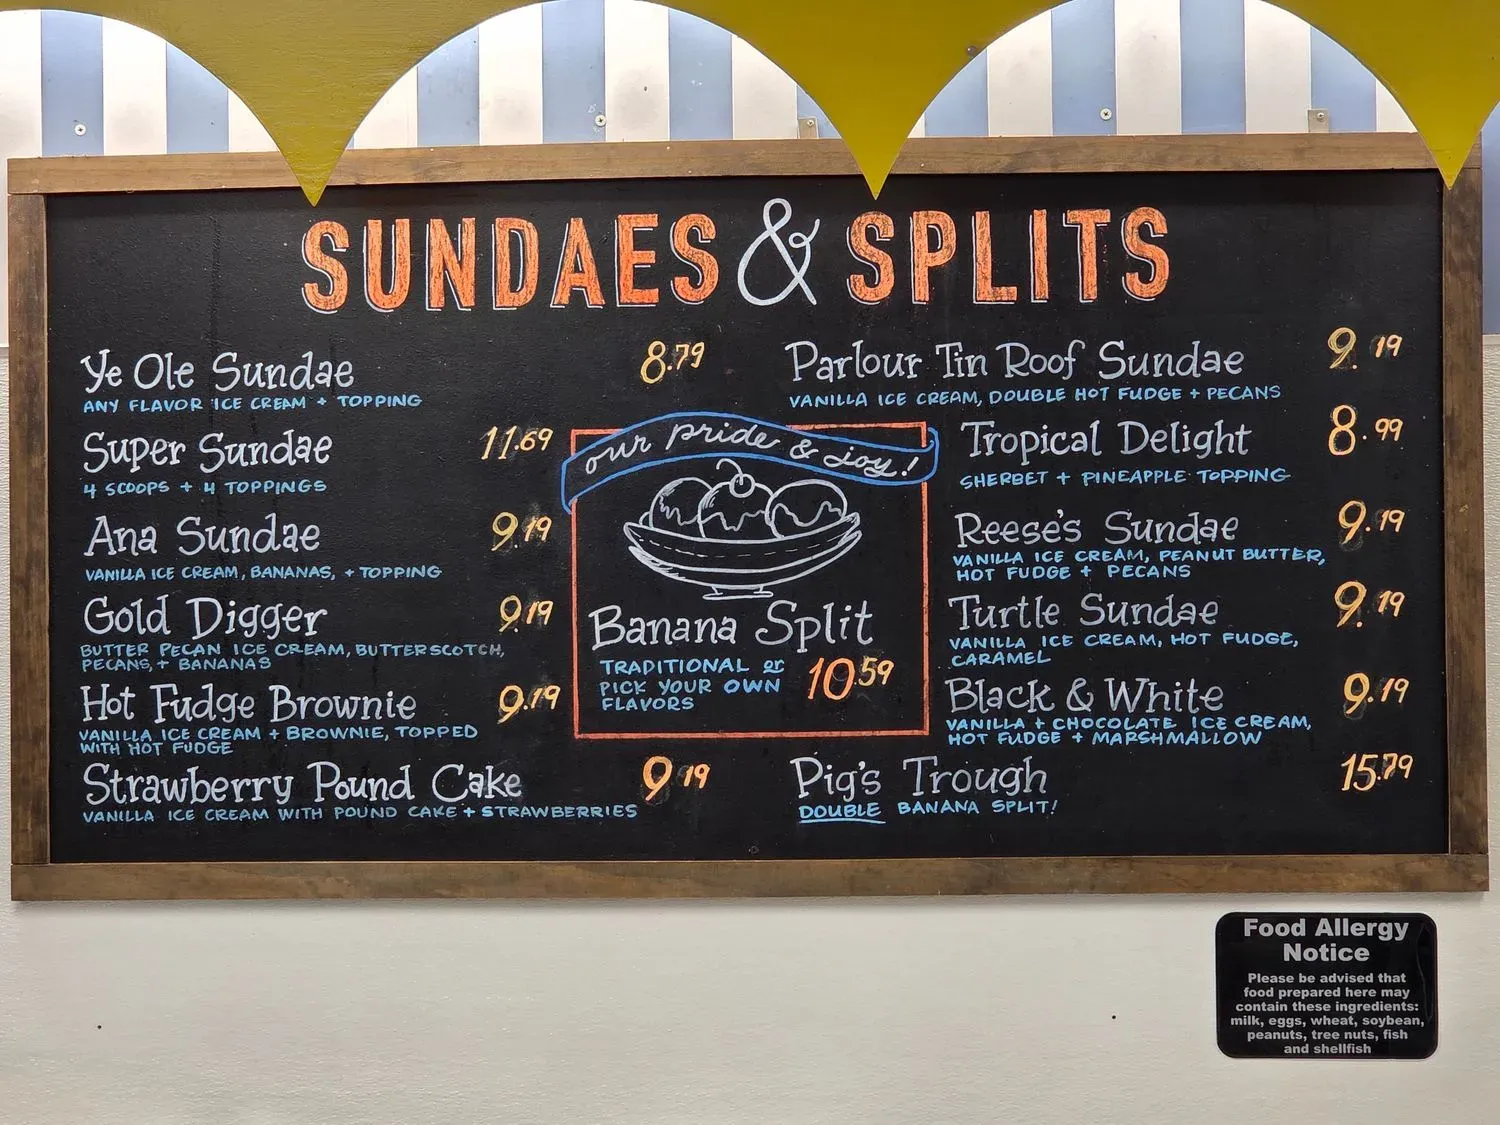 SUNDAES & SPLITS
Ye Ole Sundae 8.79
ANY FLAVOR ICE CREAM + TOPPING
Super Sundae 11.69
4 SCOOPS + 4 TOPPINGS
Ana Sundae 9.19
VANILLA ICE CREAM, BANANAS, + TOPPING
Gold Digger 9.19
BUTTER PECAN ICE CREAM, BUTTERSCOTCH,
PECANS, + BANANAS
Hot Fudge Brownie 9.19
VANILLA ICE CREAM + BROWNIE, TOPPED
WITH HOT FUDGE
Strawberry Pound Cake 9.19
VANILLA ICE CREAM WITH POUND CAKE + STRAWBERRIES
our pride & joy!
Banana Split
TRADITIONAL or
PICK YOUR OWN
FLAVORS
10.59
Parlour Tin Roof Sundae 9.19
VANILLA ICE CREAM, DOUBLE HOT FUDGE + PECANS
Tropical Delight 8.99
SHERBET + PINEAPPLE TOPPING
Reese's Sundae 9.19
VANILLA ICE CREAM, PEANUT BUTTER,
HOT FUDGE + PECANS
Turtle Sundae 9.19
VANILLA ICE CREAM, HOT FUDGE,
CARAMEL
Black & White 9.19
VANILLA + CHOCOLATE ICE CREAM,
HOT FUDGE + MARSHMALLOW
Pig's Trough 15.79
DOUBLE BANANA SPLIT!
Food Allergy
Notice
Please be advised that
food prepared here may
contain these ingredients:
milk, eggs, wheat, soybean,
peanuts, tree nuts, fish
and shellfish